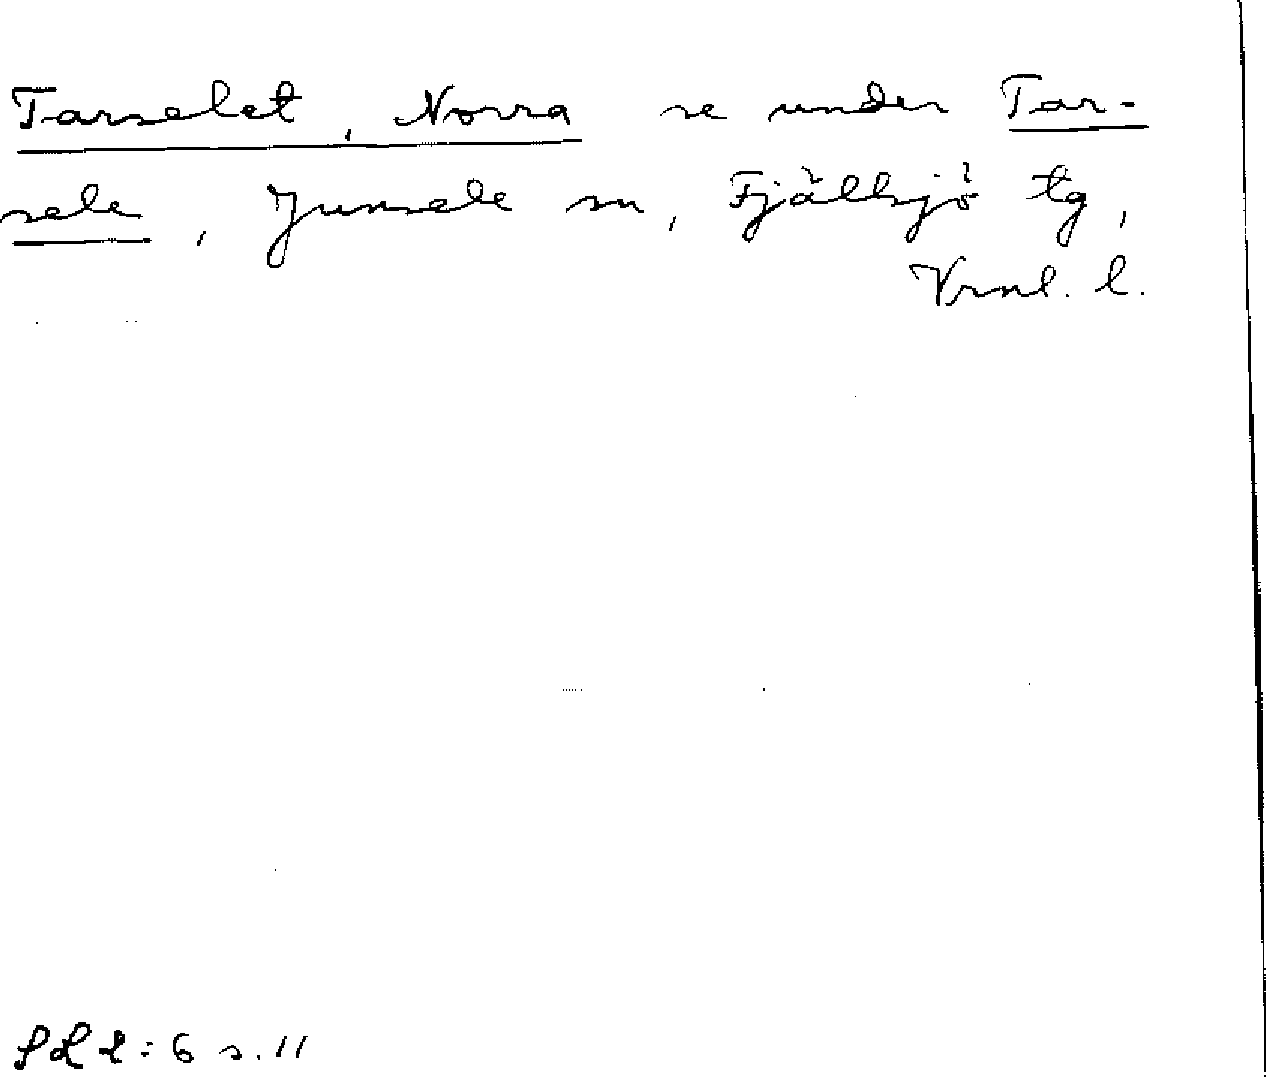 Tarselet, Norra se under Tar-
sele, Junsele sn, Fjällsjö tg,
Vrnl. l.
: 6 s. 11